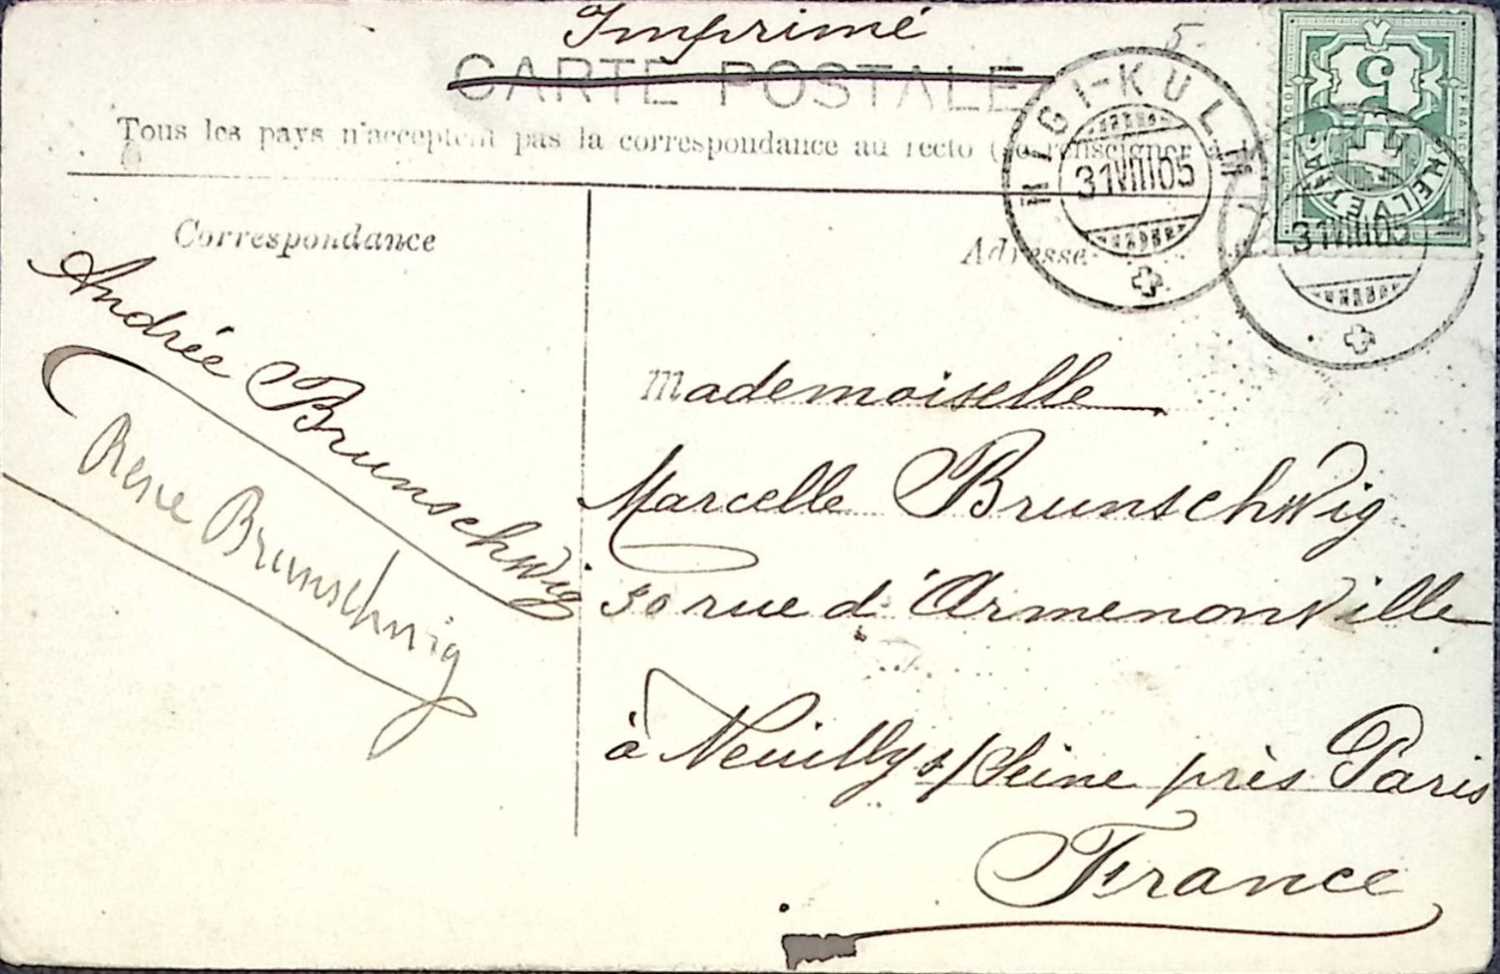 Imprimé
5.
CARTE POSTALE
Tous les pays n'acceptent pas la correspondance au recto (se renseigner
RIGI-KULM
31.VIII.05
5
FRANCO
HELVETIA
31.VIII.05
Correspondance
Adresse
Andrée Brunschwig
Rene Brunschwig
Mademoiselle
Marcelle Brunschwig
30 rue d'Armenonville
à Neuilly s/Seine près Paris
France